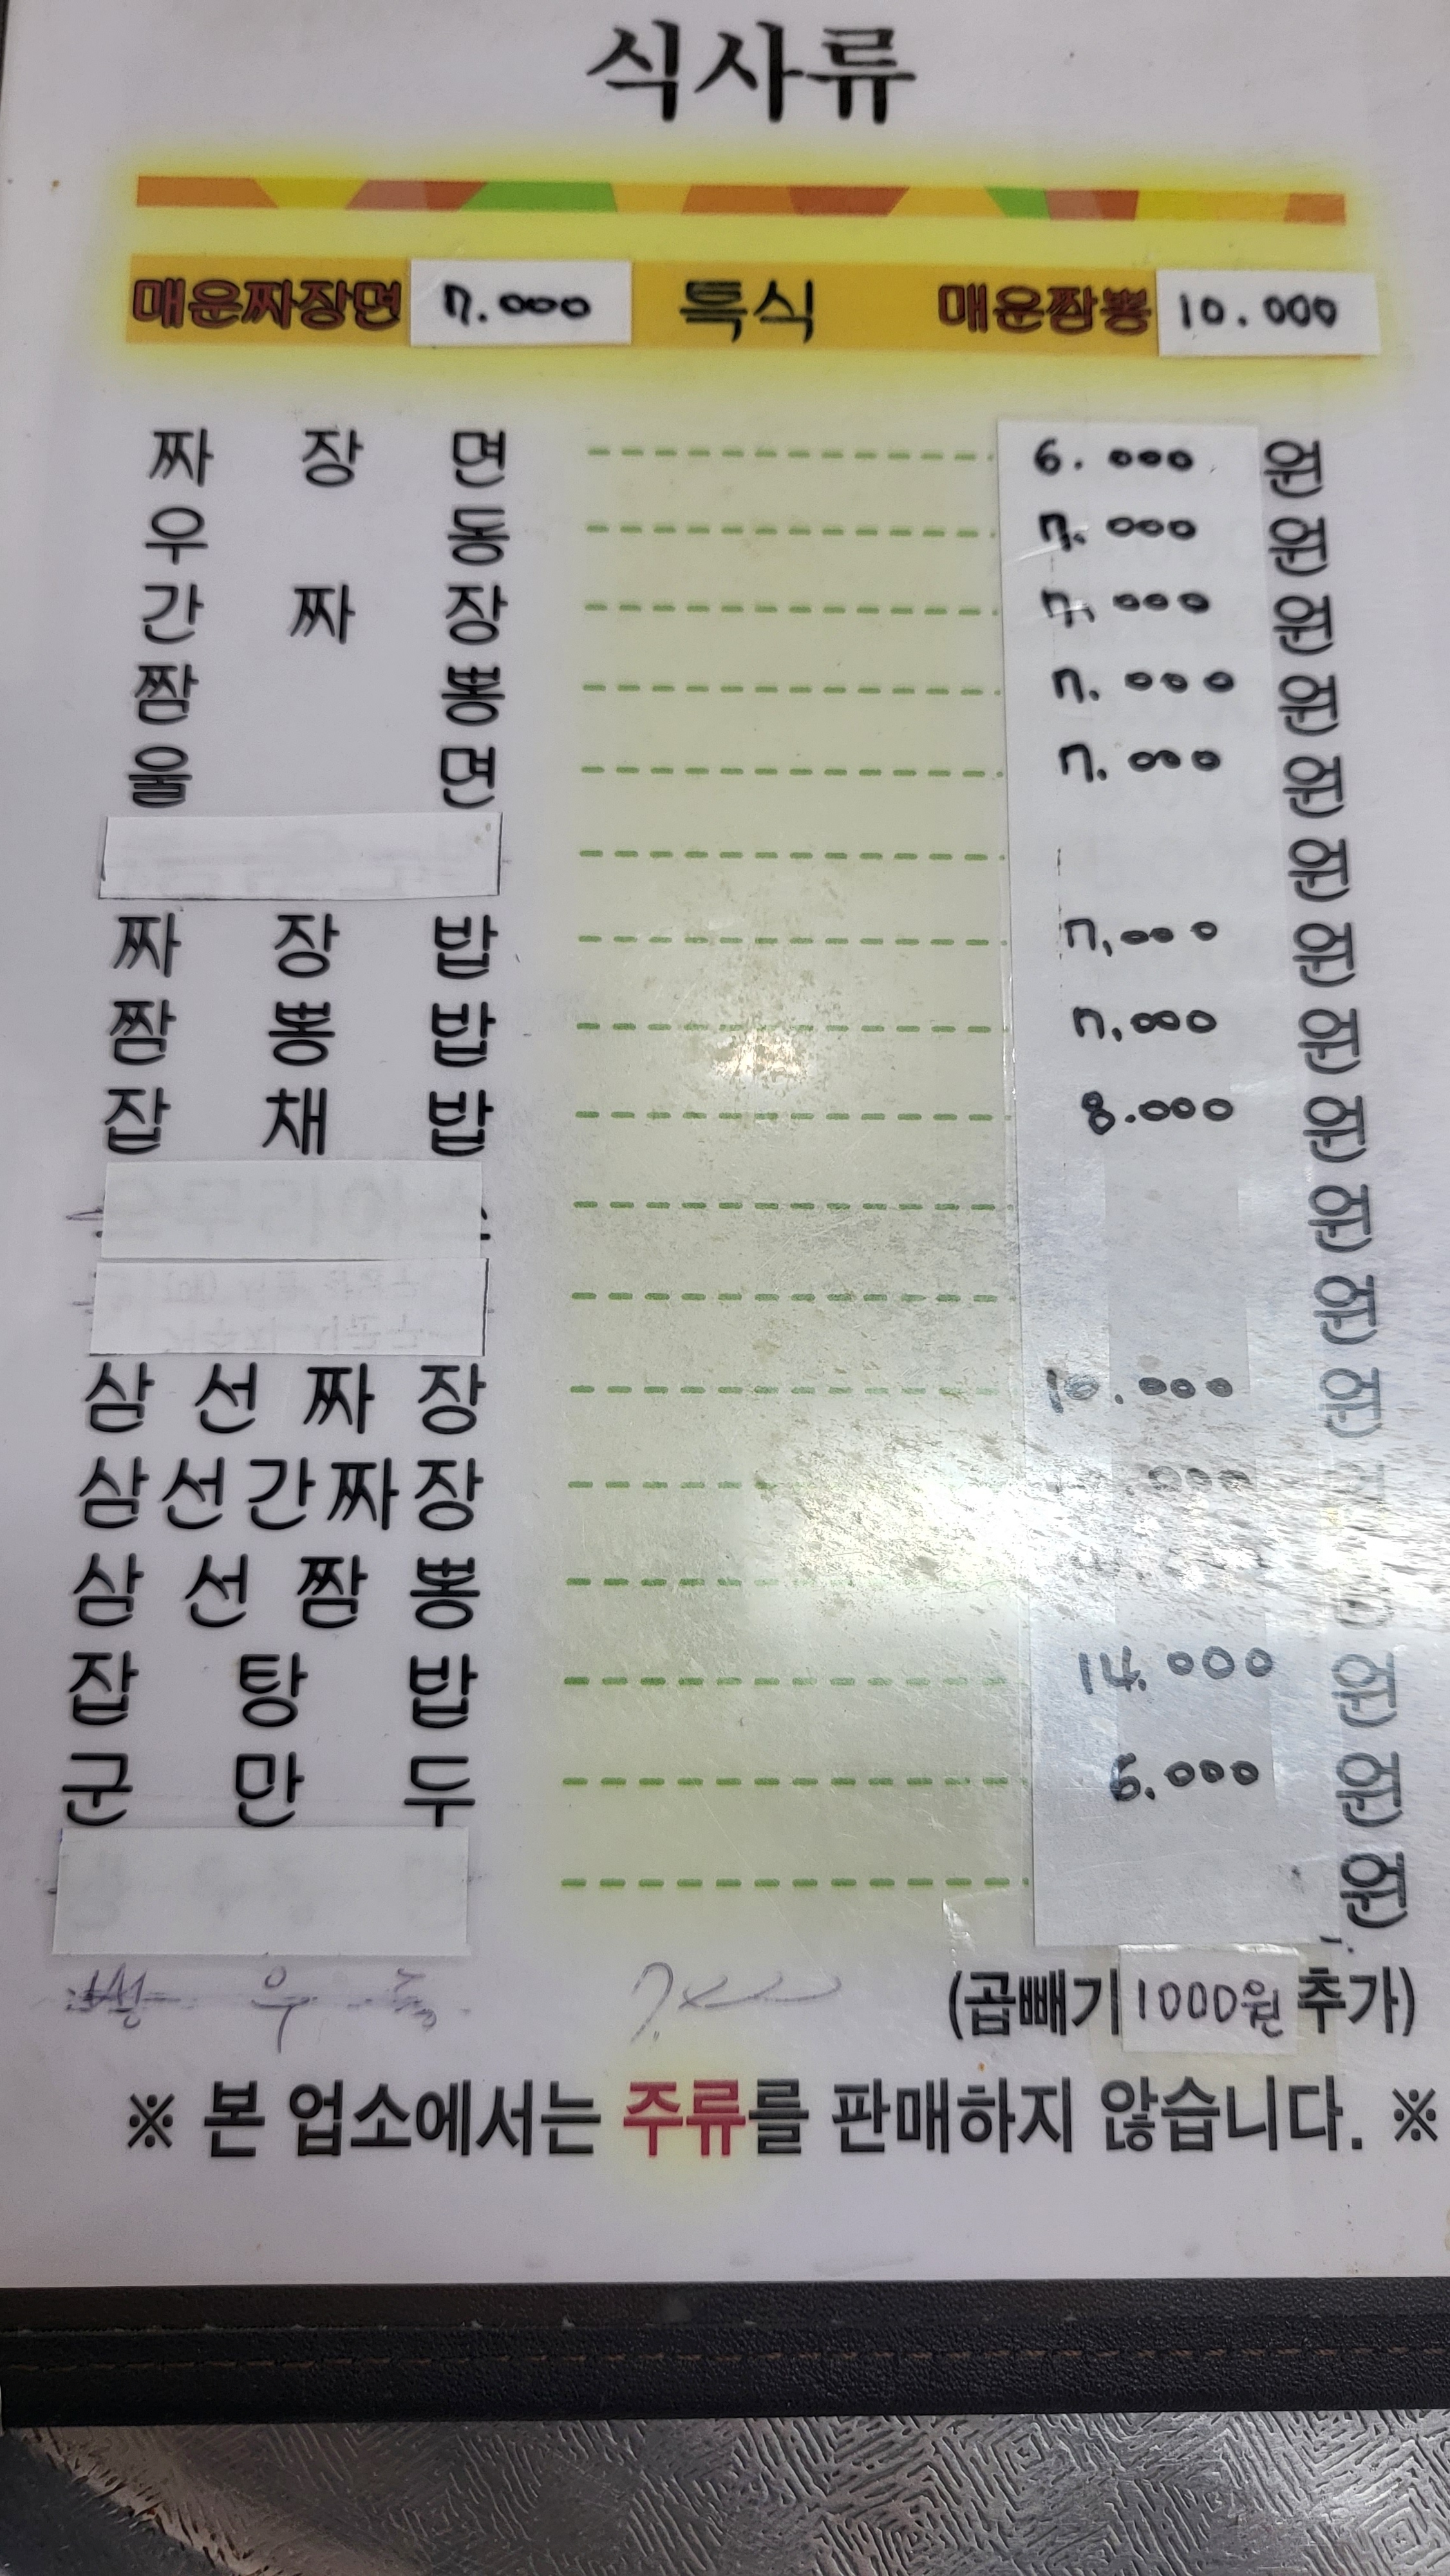 식사류
매운짜장면 7.000 특식 매운짬뽕 10.000
짜장면 6.000 원
우동 7.000 원
간짜장 7.000 원
짬뽕 7.000 원
울면 7.000 원
원
짜장밥 7,000 원
짬뽕밥 7,000 원
잡채밥 8.000 원
원
원
삼선짜장 10.000 원
삼선간짜장
삼선짬뽕
잡탕밥 14.000 원
군만두 6.000 원
원
우동
(곱빼기 1000원 추가)
※ 본 업소에서는 주류를 판매하지 않습니다. ※